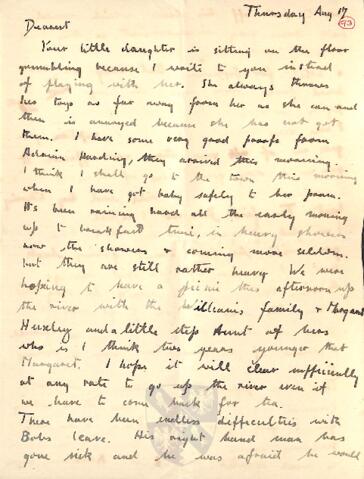 Thursday Aug 17
93
Dearest
Your little daughter is sitting on the floor
grumbling because I write to you instead
of playing with her. She always throws
her toys as far away from her as she can and
then is annoyed because she has not got
them. I have some very good proofs from
Adrian Harding, they arrived this morning.
I think I shall go to the town this morning
when I have got baby safely to her pram.
It's been raining hard all the early morning
up to breakfast time, in heavy showers
now the showers & coming more seldom.
but they are still rather heavy. We were
hoping to have a picnic this afternoon up
the river with the Williams family & Margaret
Huxley and a little step Aunt of hers
who is I think two years younger than
Margaret. I hope it will clear sufficiently
at any rate to go up the river even if
we have to come back for tea.
There have been endless difficulties with
Bobs leave. His right hand man has
gone sick and he was afraid he would